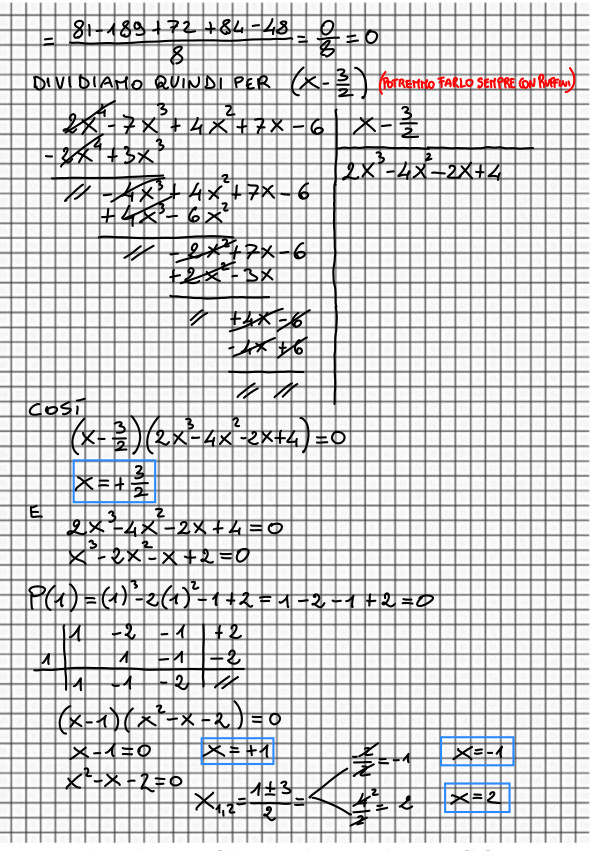 = (81-189+72+84-48)/8 = 0/8 = 0
DIVIDIAMO QUINDI PER (x-3/2) (POTREMMO FARLO SEMPRE CON RUFFINI)
2x⁴-7x³+4x²+7x-6 | x-3/2
-2x⁴+3x³ | 2x³-4x²-2x+4
// -4x³+4x²+7x-6
+4x³-6x²
// -2x²+7x-6
+2x²-3x
// +4x-6
-4x+6
// //
COSÌ
(x-3/2)(2x³-4x²-2x+4)=0
x=+3/2
E
2x³-4x²-2x+4=0
x³-2x²-x+2=0
P(1)=(1)³-2(1)²-1+2=1-2-1+2=0
| 1 -2 -1 | +2
1 | 1 -1 | -2
| 1 -1 -2 | //
(x-1)(x²-x-2)=0
x-1=0 x=+1
x²-x-2=0
x₁,₂=(1±3)/2=
-2/2=-1 x=-1
4²/2=2 x=2